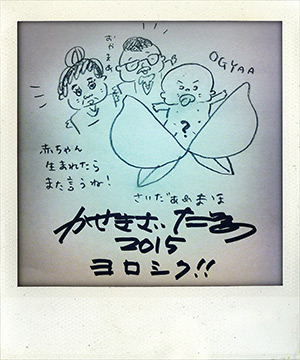 おやまあ
OGYAA
?
赤ちゃん
生まれたら
また言うね!
さいだあめまほ
かせきさいだぁ
2015
ヨロシク!!